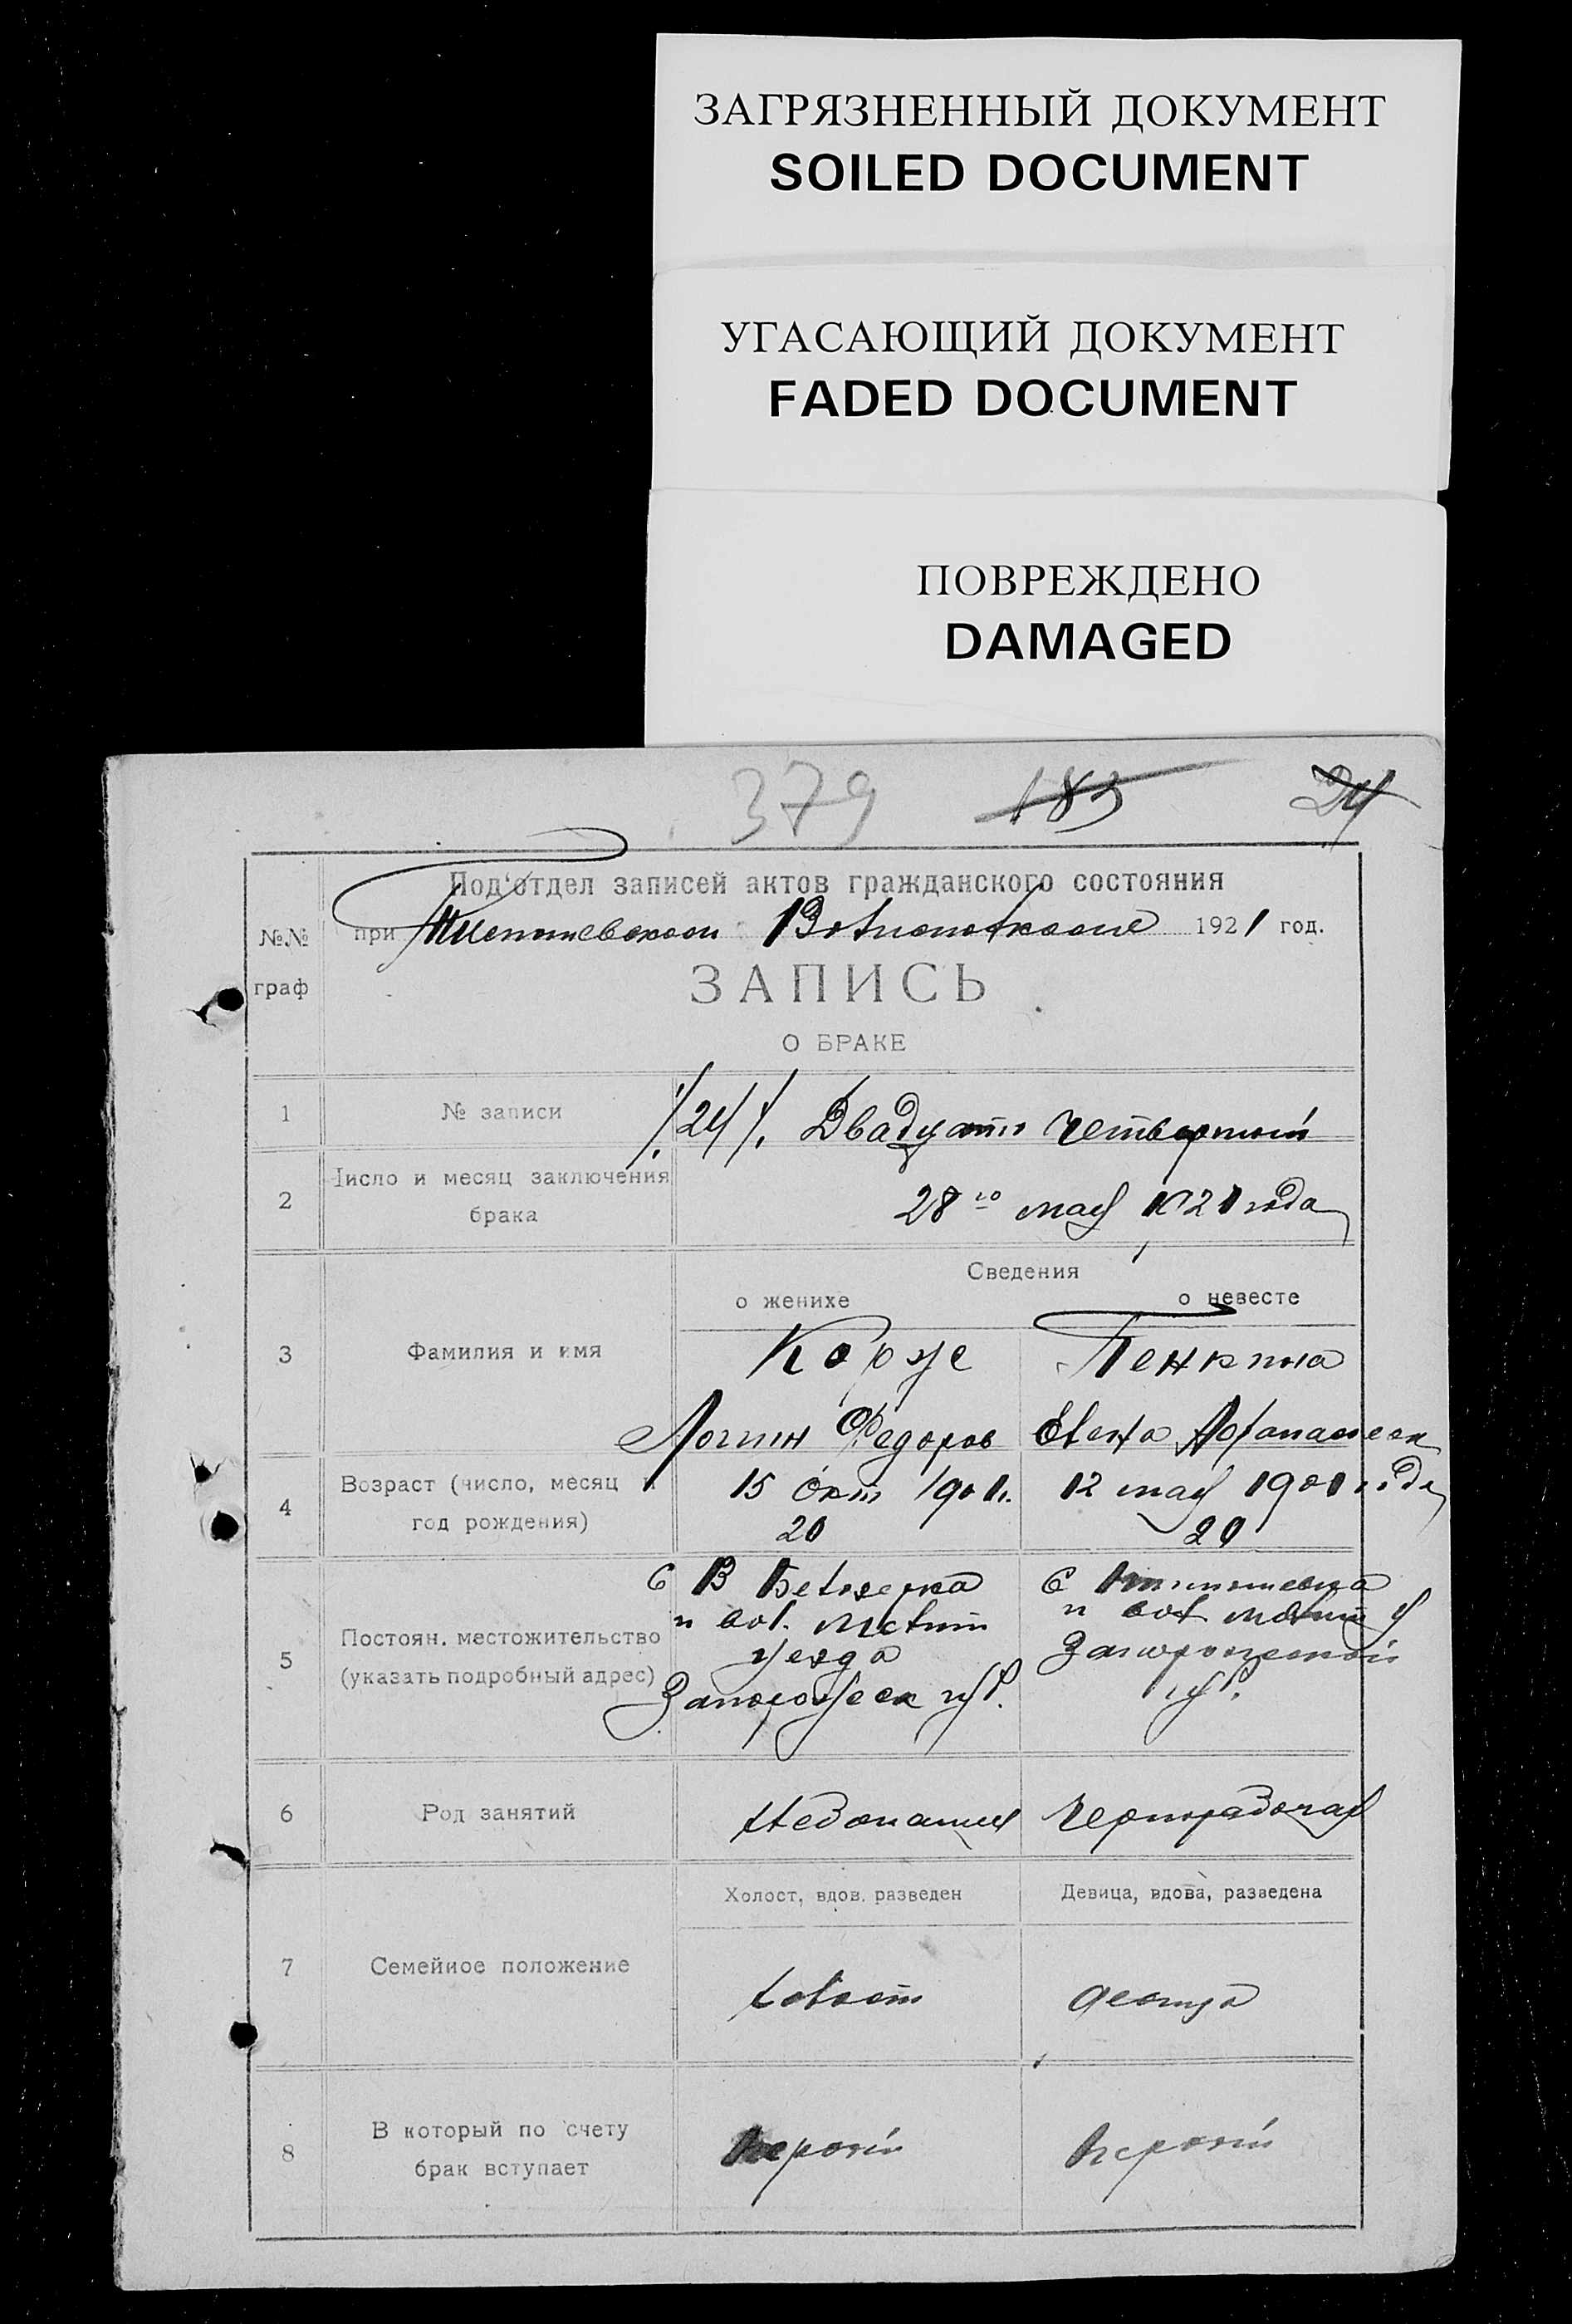 ЗАГРЯЗНЕННЫЙ ДОКУМЕНТ
SOILED DOCUMENT
УГАСАЮЩИЙ ДОКУМЕНТ
FADED DOCUMENT
ПОВРЕЖДЕНО
DAMAGED
379 183 24
Под'отдел записей актов гражданского состояния
№№ при 1921 год.
граф
ЗАПИСЬ
О БРАКЕ
1 № записи /24/. Двадцать Четвертый
2 Число и месяц заключения
брака 28го мая 1921 года
Сведения
о женихе о невесте
3 Фамилия и имя Корже
Логин Федоров Елена
4 Возраст (число, месяц и
год рождения)
15 окт 1901. 12 мая 1901 года
20 20
5 Постоян. местожительство
(указать подробный адрес)
С В Белозерка С
и вол. Мелит и вол Мелит у
уезда Запорожской
Запорожск губ. губ.
6 Род занятий Хлебопашец Чернорабочая
Холост, вдов, разведен Девица, вдова, разведена
7 Семейное положение холост девица
8 В который по счету
брак вступает
первый первый